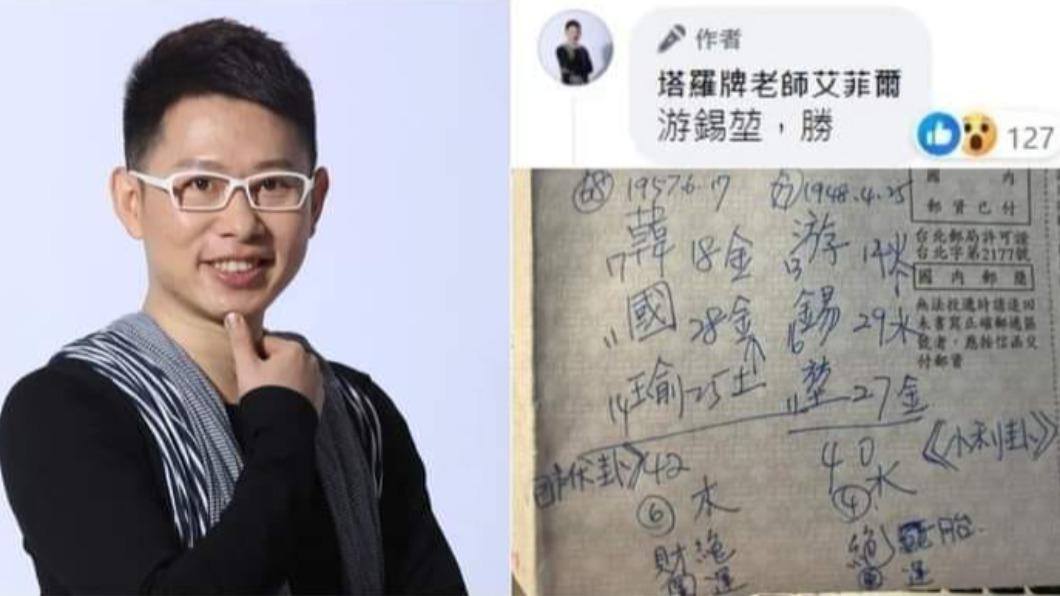 作者
塔羅牌老師艾菲爾
游錫堃，勝
127
68 1957.6.17
1948.4.25
韓 18金
17
國 28金
11
瑜 25土
14
游
13
錫 29水
16
堃 27金
11
42
⑥ 木
財絕
運
40
水
④
絕 胎
運
《小利卦》
國內
郵資已付
台北郵局許可證
台北字第2177號
國內郵簡
無法投遞時請退回
未書寫正確郵遞區
號者，應按信函交
付郵資